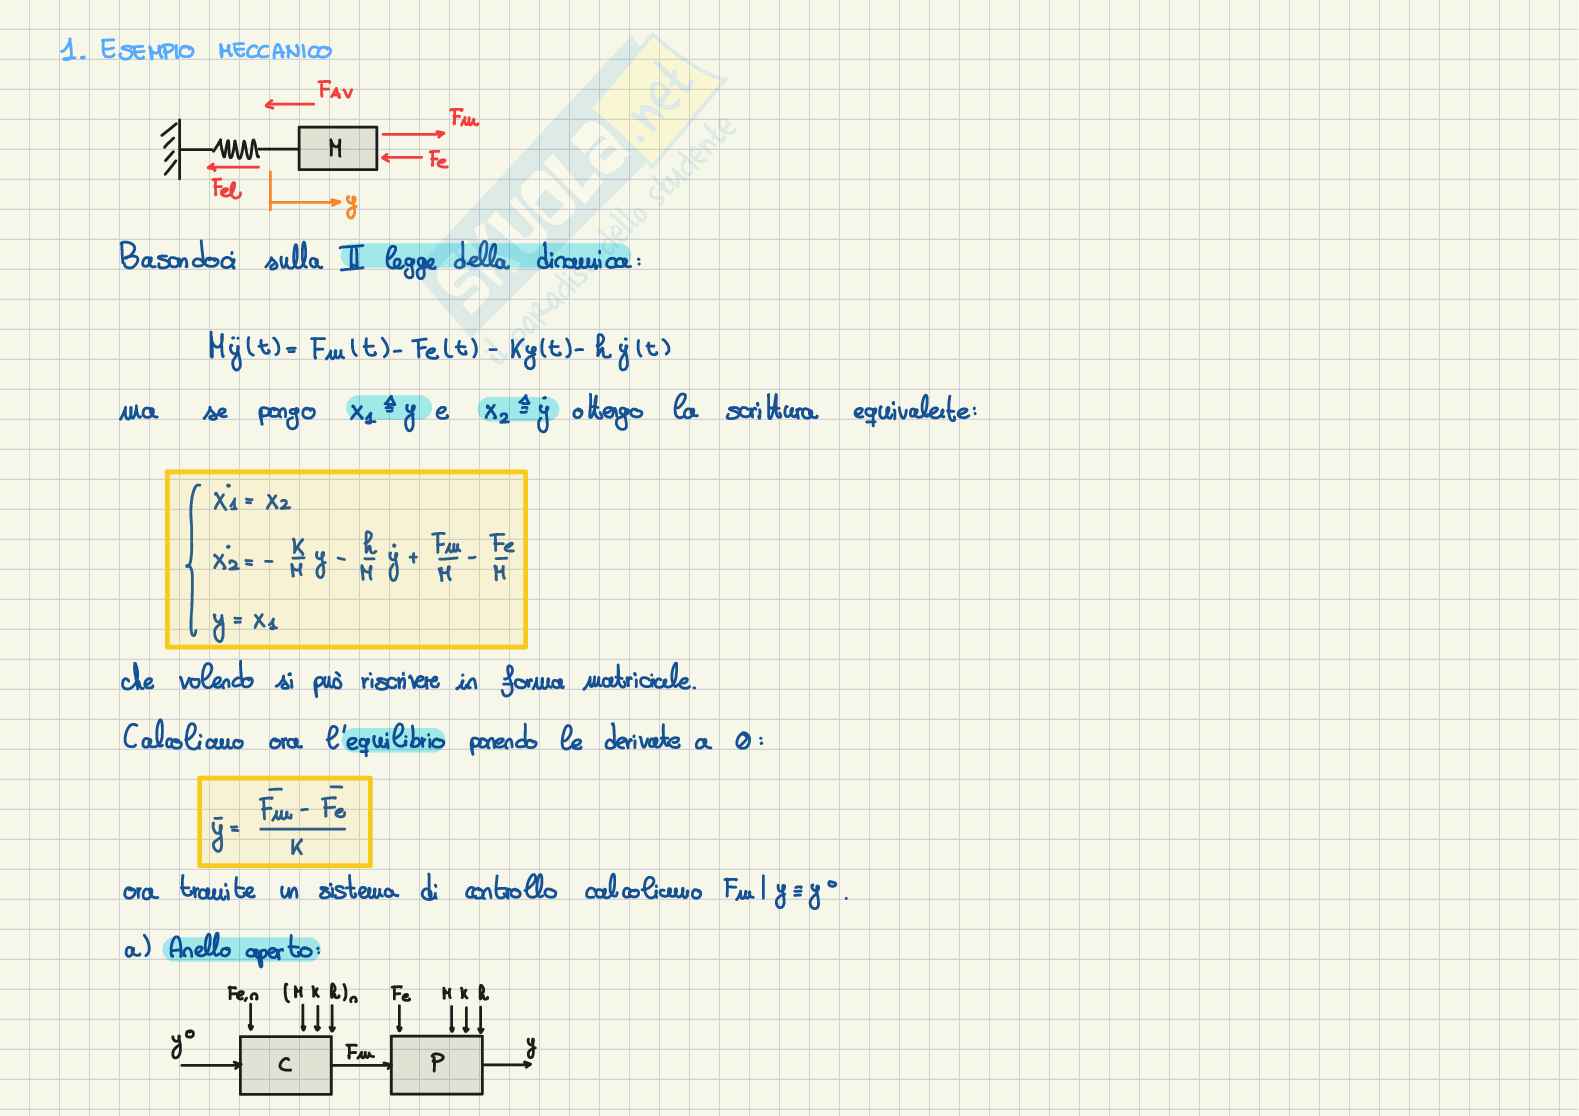 1. ESEMPIO MECCANICO
FAV
Fm
M
Fe
Fel
y
SKUOLA.net
il paradiso dello studente
Basandoci sulla II legge della dinamica:
Mÿ(t) = Fm(t) - Fe(t) - Ky(t) - h ẏ(t)
ma se pongo x₁ ≜ y e x₂ ≜ ẏ ottengo la scrittura equivalente:
ẋ₁ = x₂
ẋ₂ = - K/M y - h/M ẏ + Fm/M - Fe/M
y = x₁
che volendo si può riscrivere in forma matriciale.
Calcoliamo ora l'equilibrio ponendo le derivate a 0:
ȳ = (F̄m - F̄e)/K
ora tramite un sistema di controllo calcoliamo Fm | y ≡ y°.
a) Anello aperto:
Fe,n (M K h)n Fe M K h
y° C Fm P y